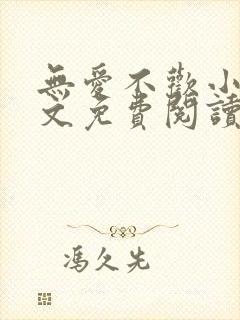 無愛不歡小
文免費閱讀
馮久先